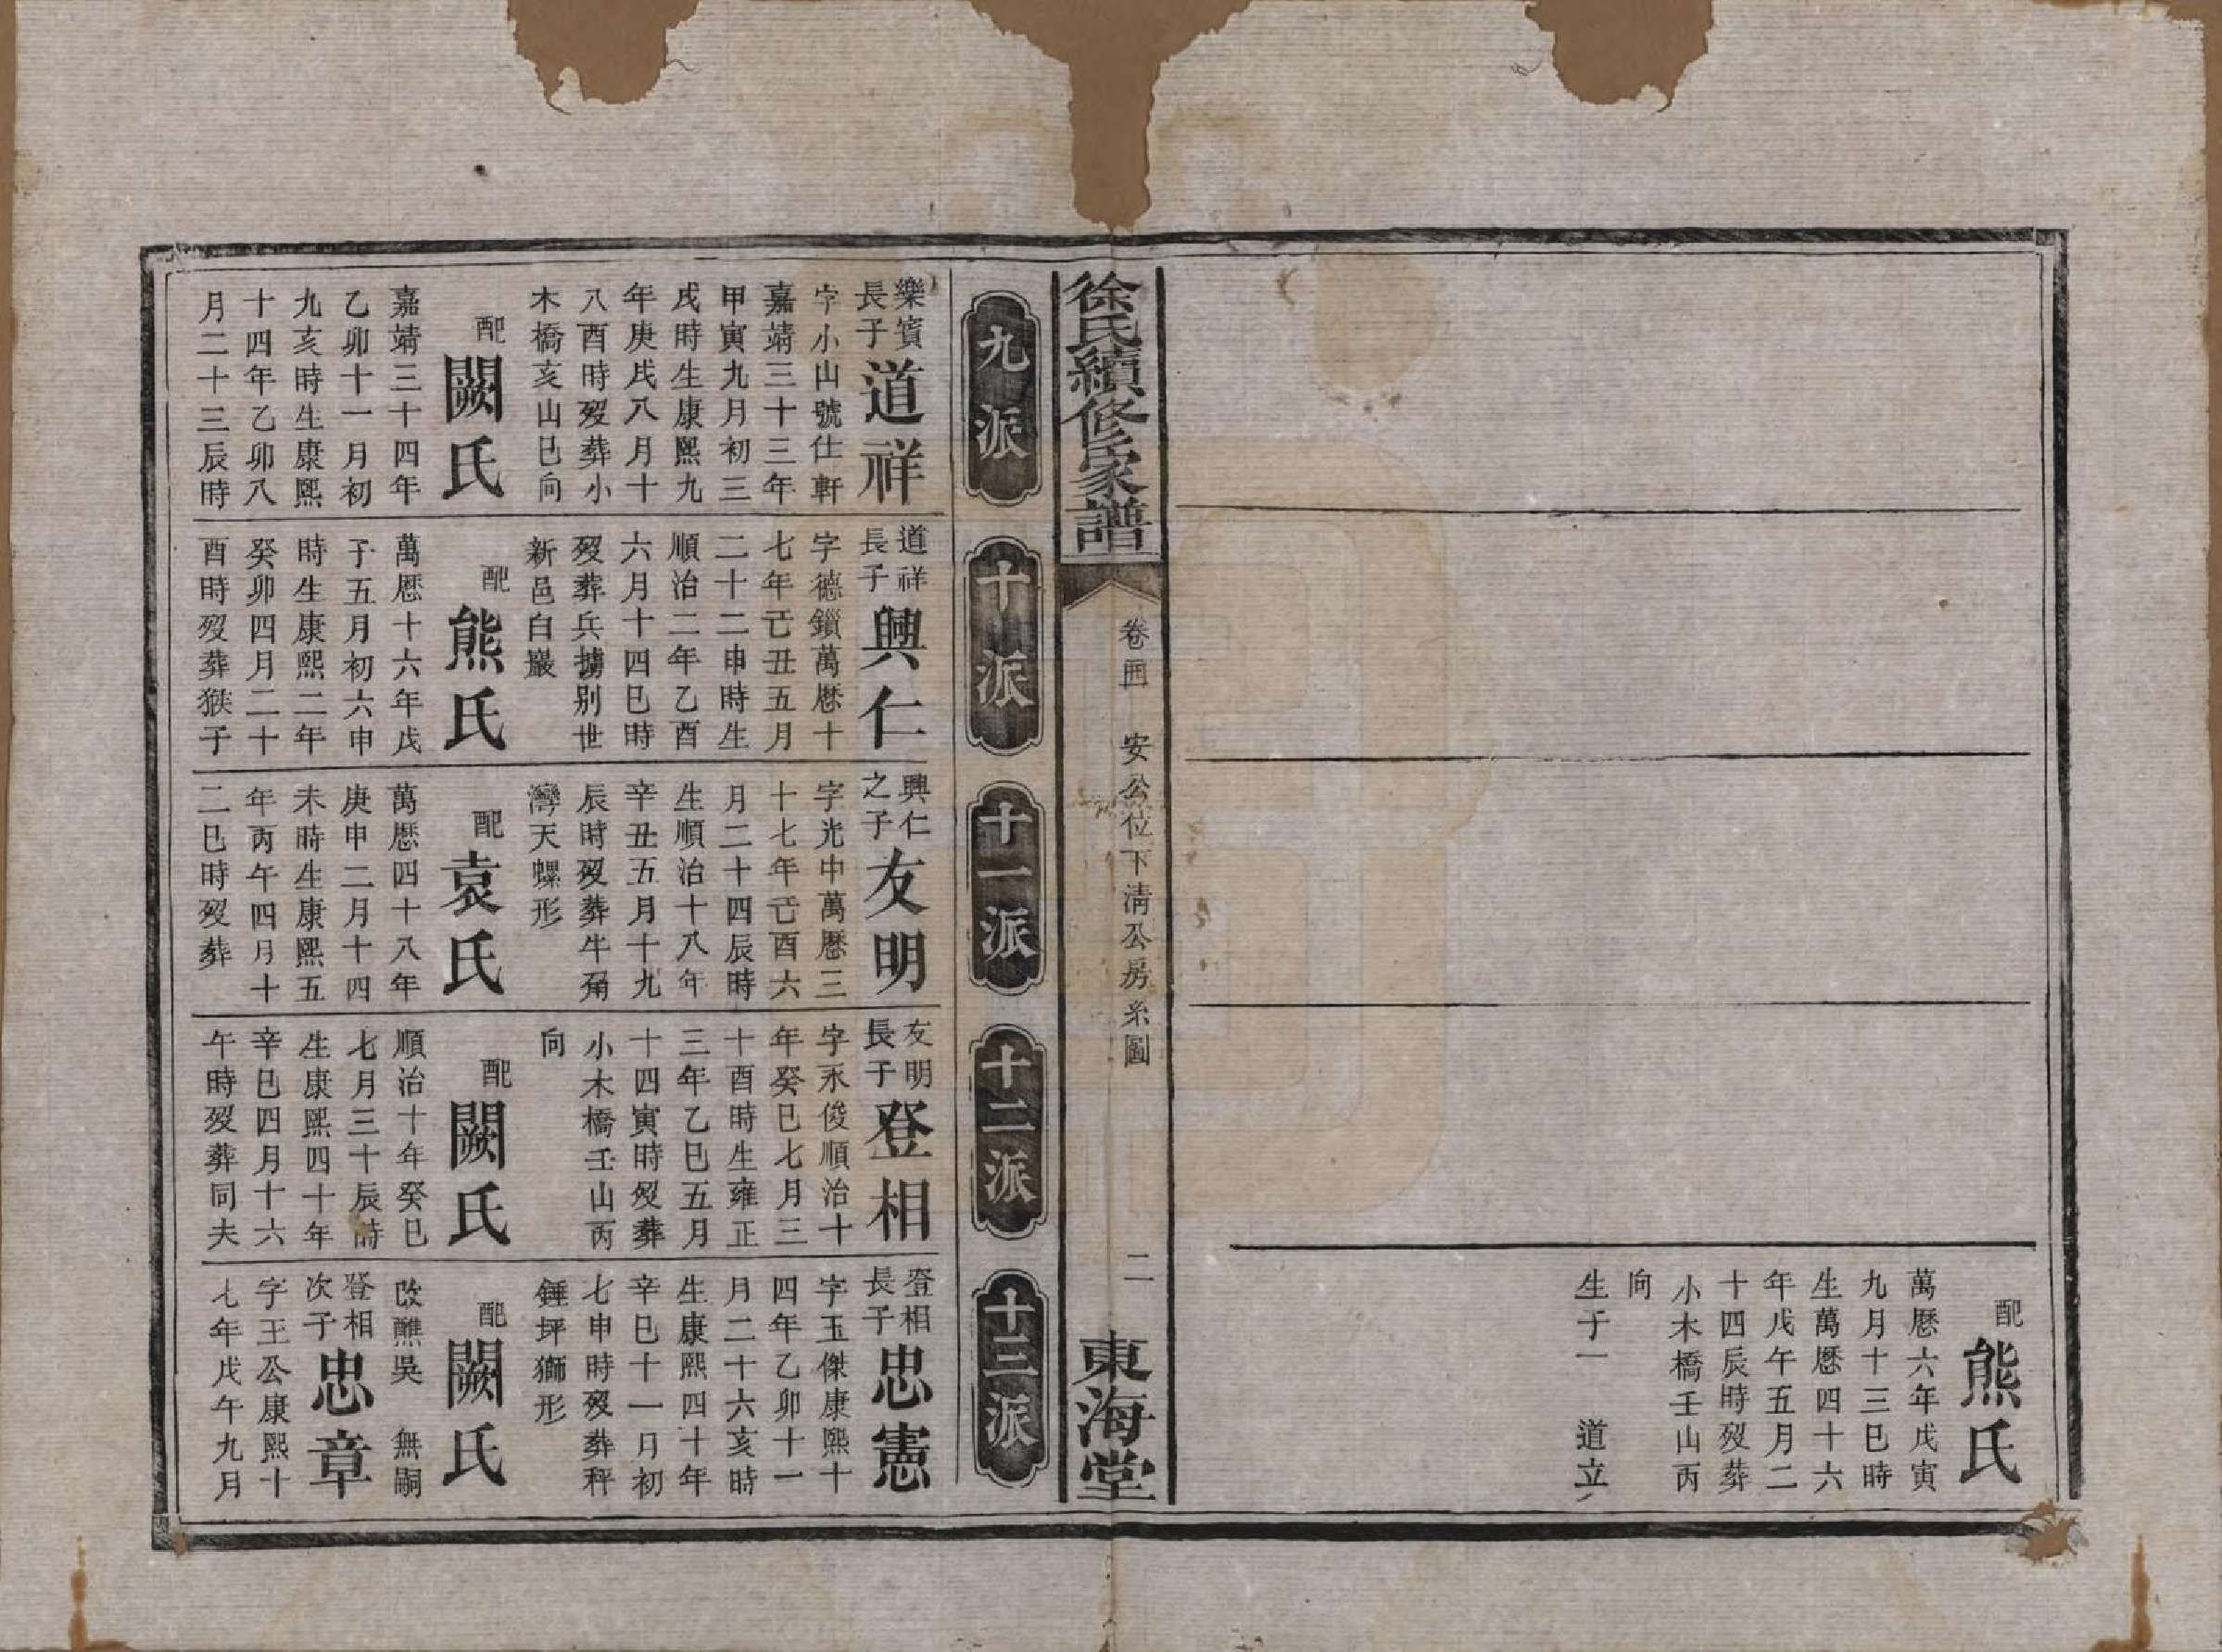 配
熊氏
萬厯六年戊寅
九月十三巳時
生萬厯四十六
年戊午五月二
十四辰時歿葬
小木橋壬山丙
向
生子一 道立
徐氏續修家譜
安公位下清公房系圖
二
東海堂
九派
樂賓
長子
道祥
字小山號仕軒
嘉靖三十三年
甲寅九月初三
戌時生康熙九
年庚戌八月十
八酉時歿葬小
木橋亥山巳向
配
闕氏
嘉靖三十四年
乙卯十一月初
九亥時生康熙
十四年乙卯八
月二十三辰時
十派
道祥
長子
興仁
字德鎖萬厯十
七年己丑五月
二十二申時生
順治二年乙酉
六月十四巳時
歿葬兵擄别世
新邑白巖
配
熊氏
萬厯十六年戊
子五月初六申
時生康熙二年
癸卯四月二十
酉時歿葬猴子
十一派
興仁
之子
友明
字光中萬厯三
十七年己酉六
月二十四辰時
生順治十八年
辛丑五月十九
辰時歿葬牛角
灣天螺形
配
袁氏
萬厯四十八年
庚申二月十四
未時生康熙五
年丙午四月十
二巳時歿葬
十二派
友明
長子
登相
字永俊順治十
年癸巳七月三
十酉時生雍正
三年乙巳五月
十四寅時歿葬
小木橋壬山丙
向
配
闕氏
順治十年癸巳
七月三十辰時
生康熙四十年
辛巳四月十六
午時歿葬同夫
十三派
登相
長子
忠憲
字玉傑康熙十
四年乙卯十一
月二十六亥時
生康熙四十年
辛巳十一月初
七申時歿葬秤
錘坪獅形
配
闕氏
改醮吳 無嗣
登相
次子
忠章
字王公康熙十
七年戊午九月